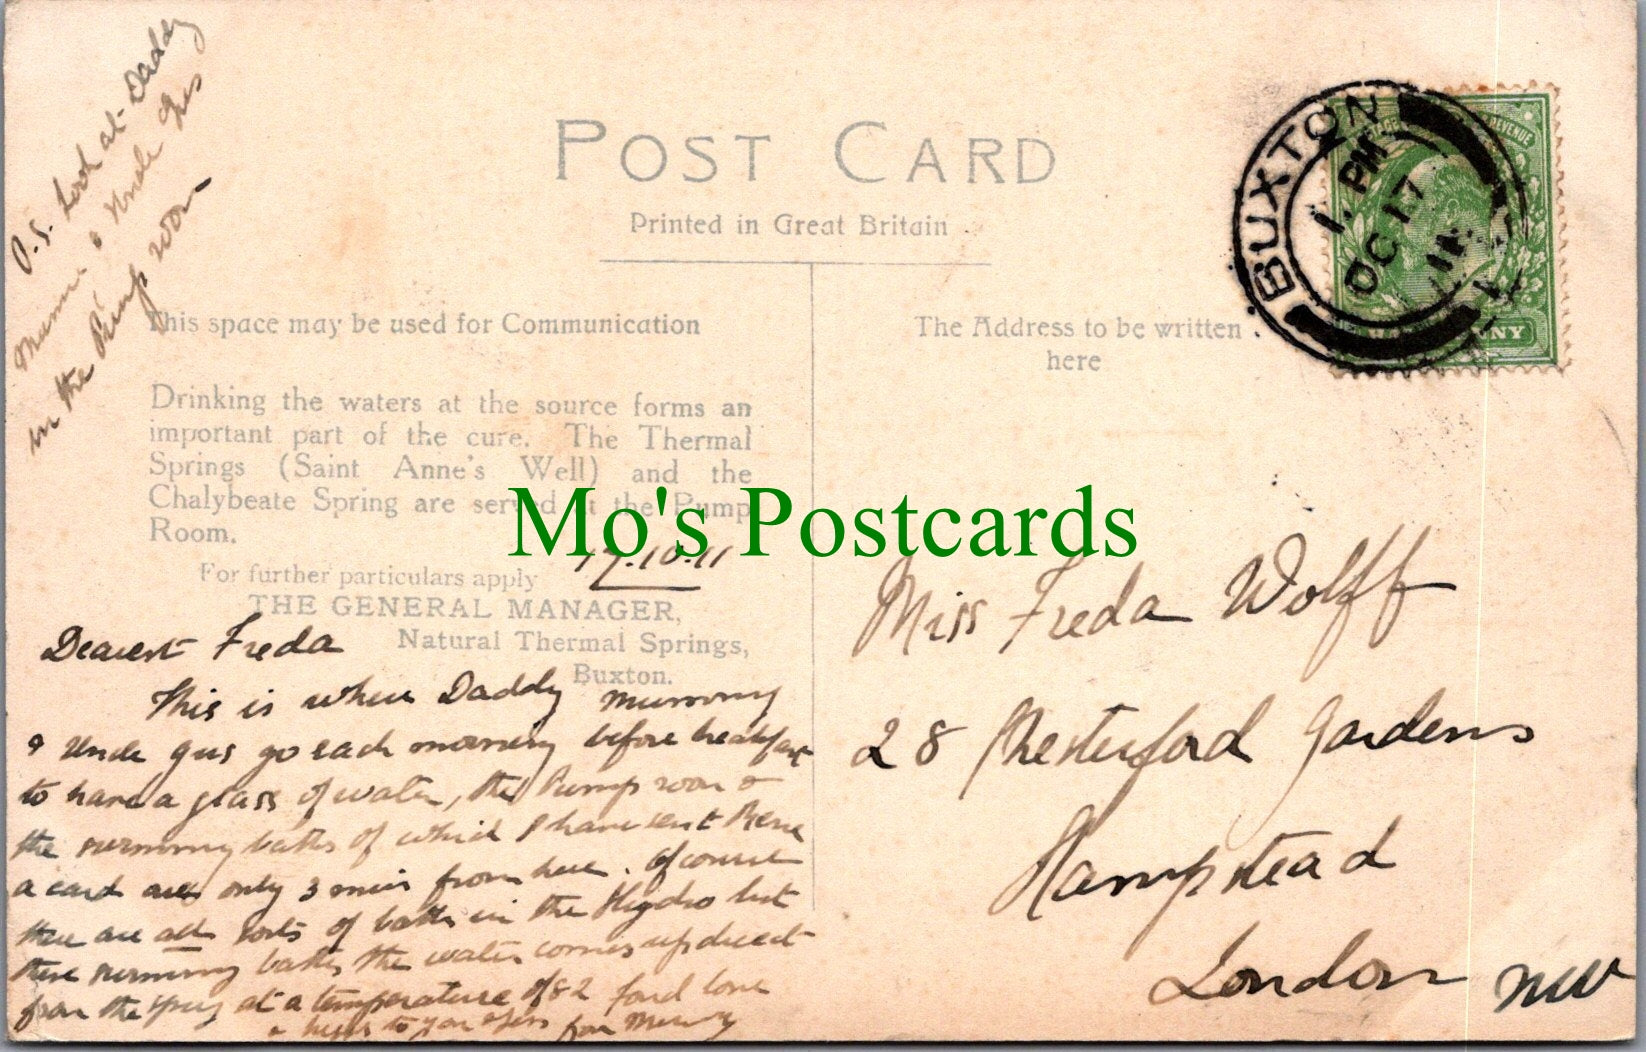 POST CARD
Printed in Great Britain
This space may be used for Communication
The Address to be written
here
Drinking the waters at the source forms an
important part of the cure. The Thermal
Springs (Saint Anne's Well) and the
Chalybeate Spring are served at the Pump
Room.
For further particulars apply
THE GENERAL MANAGER,
Natural Thermal Springs,
Buxton.
Mo's Postcards
BUXTON
1. PM
OC 17
11
REVENUE
P.S. Look at Daddy
Mummy & Uncle Gus
in the Pump room
17.10.11
Dearest Freda
This is where Daddy Mummy
& Uncle Gus go each morning before breakfast
to have a glass of water, the Pump room &
the swimming baths of which I have sent Rene
a card are only 3 mins from here. Of course
there are all sorts of baths in the Hydro but
these swimming baths the water comes up direct
from the spring at a temperature of 82 fond love
& kisses to you from Mummy
Miss Freda Wolff
28 Chesterford Gardens
Hampstead
London NW